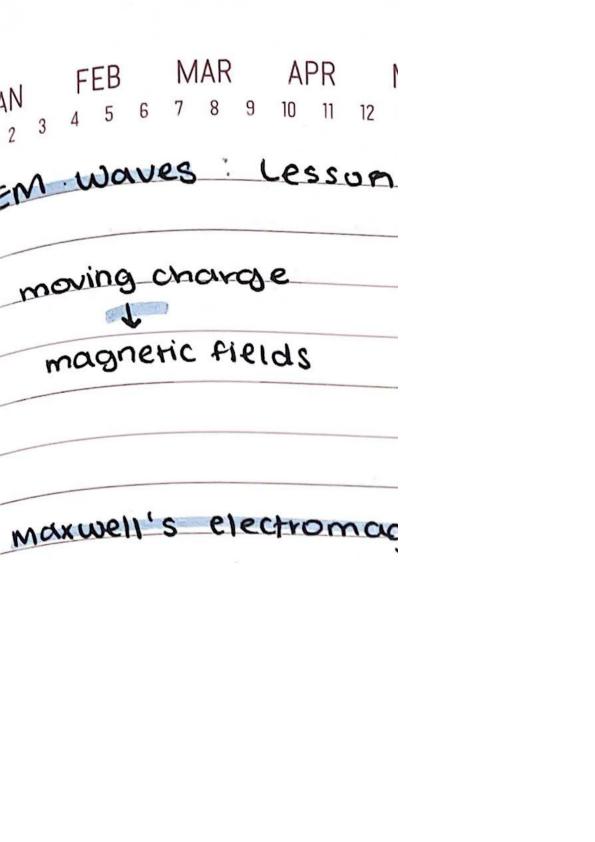 AN FEB MAR APR
2 3 4 5 6 7 8 9 10 11 12
EM. Waves : Lesson
moving charge
↓
magnetic fields
maxwell's electromag